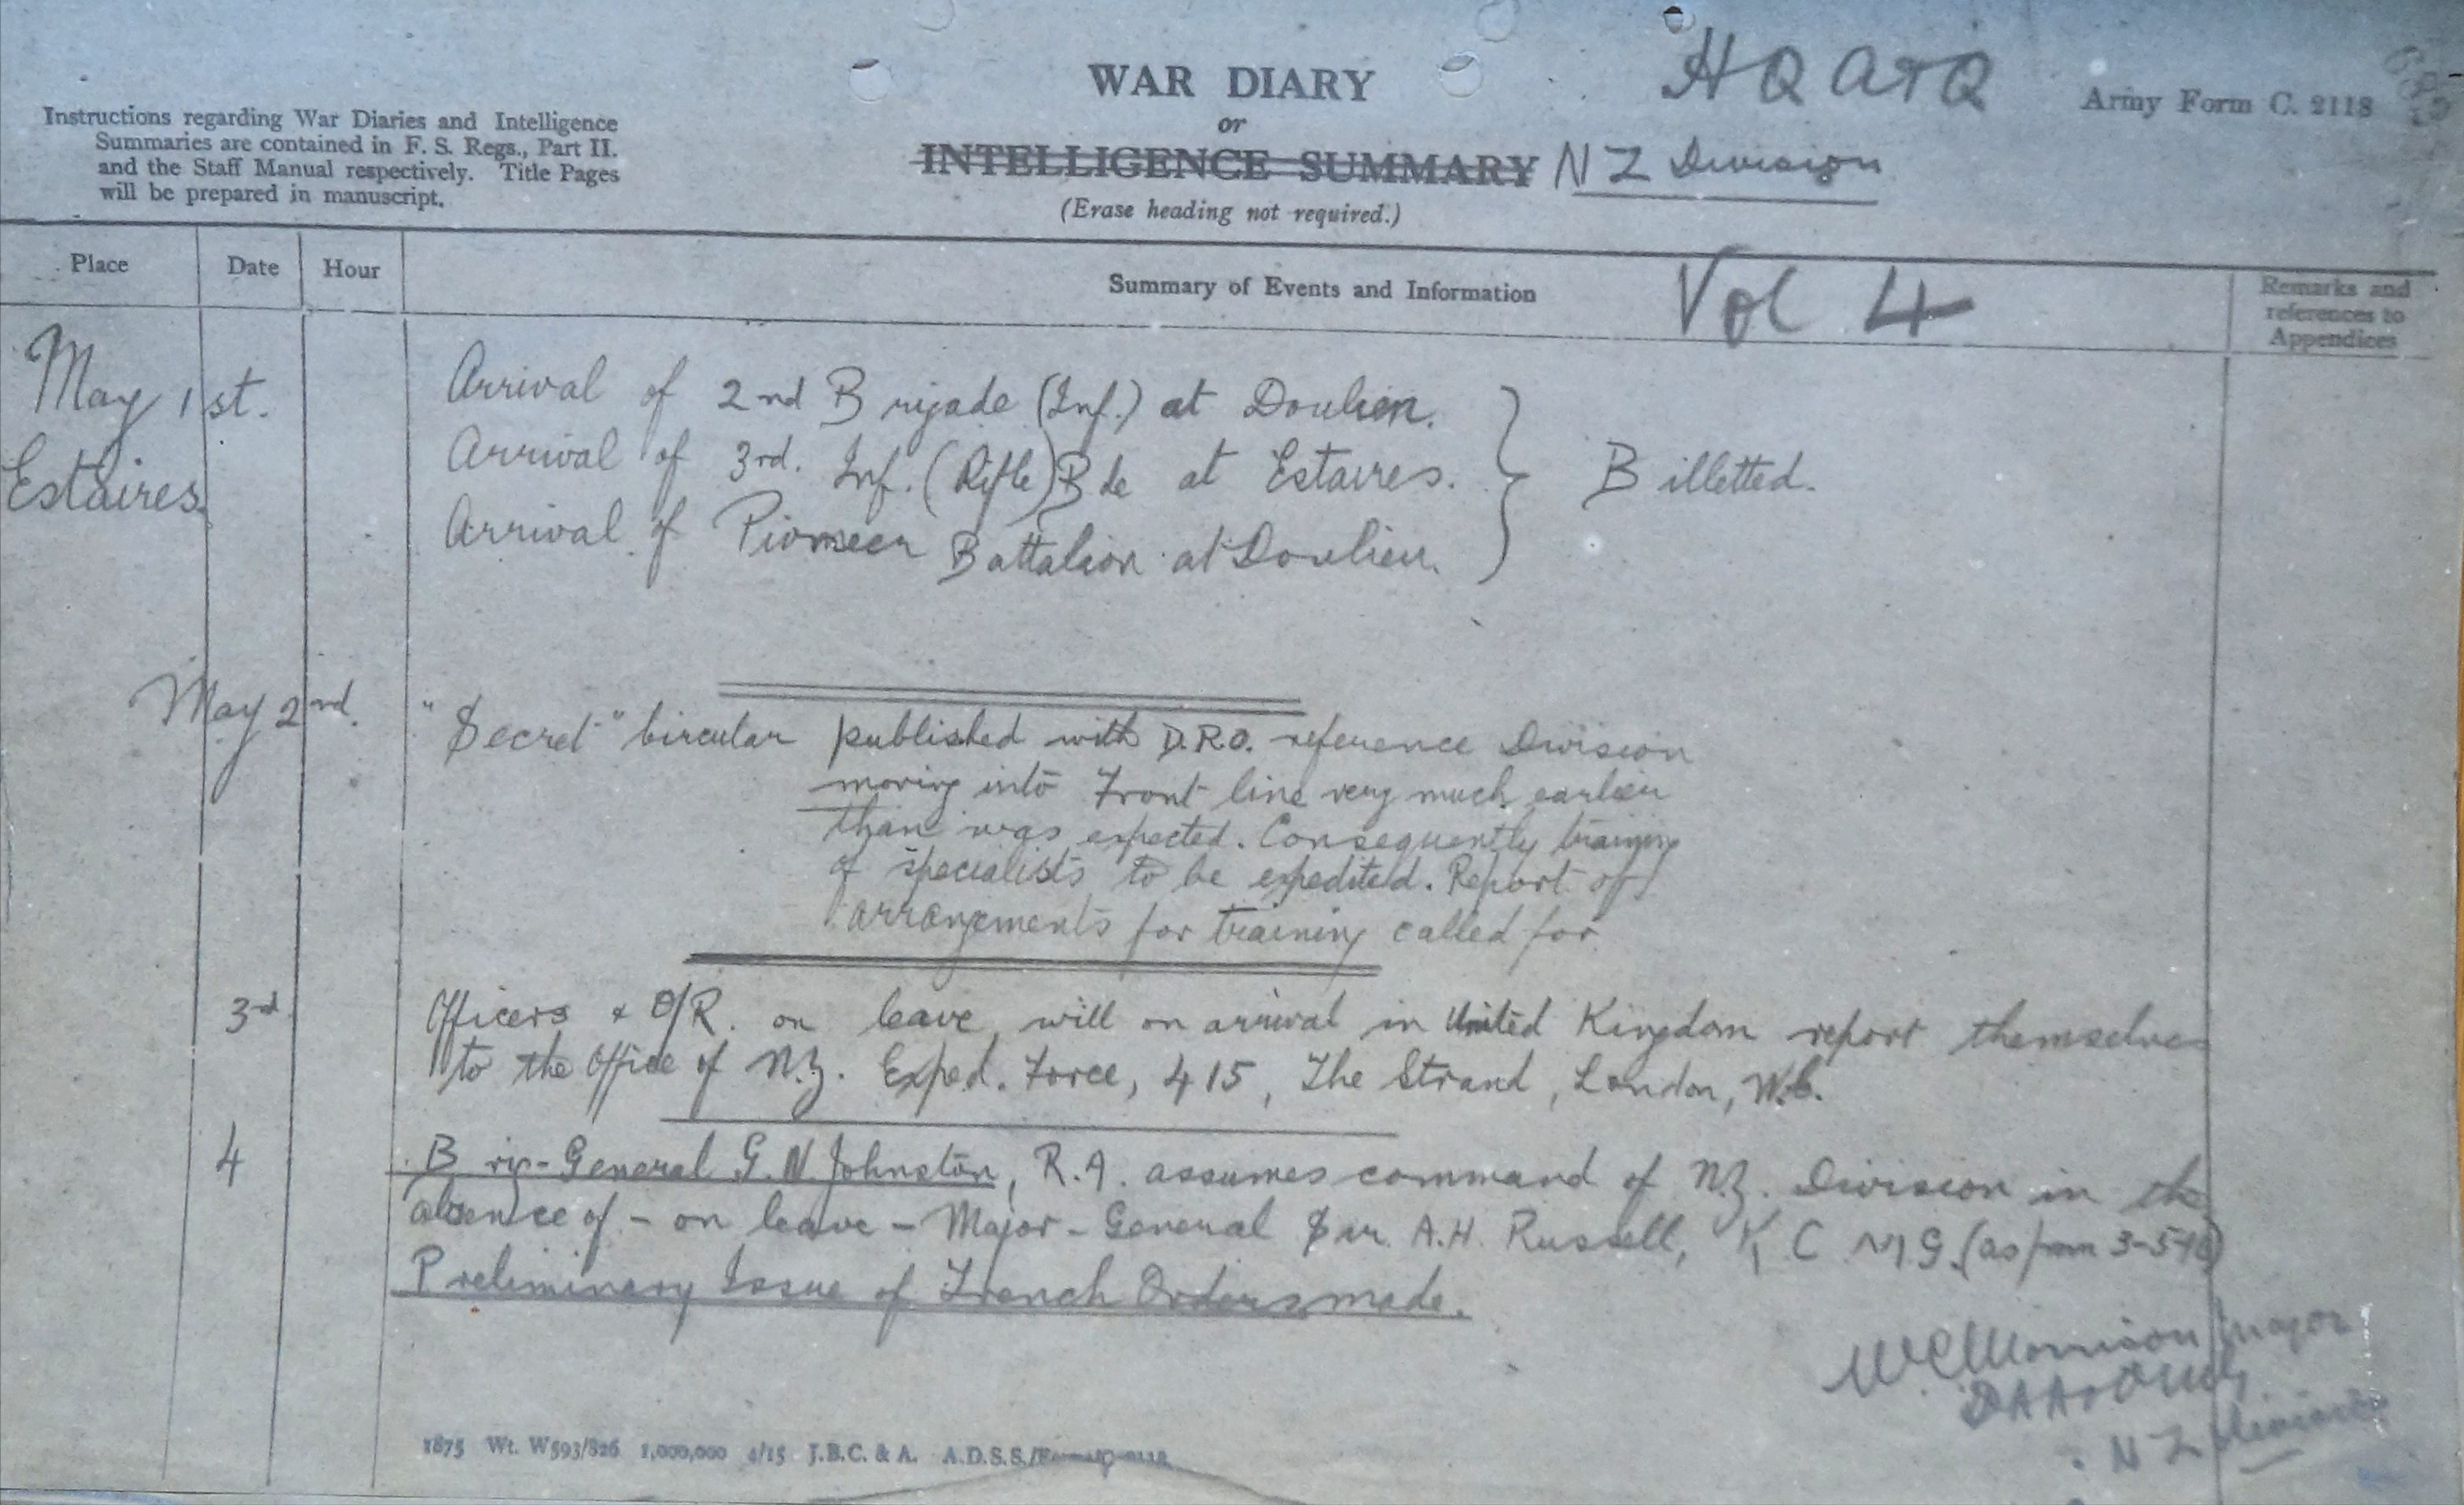 WAR DIARY
or
INTELLIGENCE SUMMARY
(Erase heading not required.)
HQ A+Q
NZ Division
Army Form C. 2118
Instructions regarding War Diaries and Intelligence
Summaries are contained in F. S. Regs., Part II.
and the Staff Manual respectively. Title Pages
will be prepared in manuscript.
Place Date Hour Summary of Events and Information Vol 4
Remarks and
references to
Appendices
May 1st. Arrival of 2nd Brigade (Inf.) at Doulieu.
Estaires Arrival of 3rd. Inf. (Rifle) Bde at Estaires. } Billetted.
Arrival of Pioneer Battalion at Doulieu.
May 2nd. "Secret" Circular published with D.R.O. reference Division
moving into Front line very much earlier
than was expected. Consequently training
of specialists to be expedited. Report of
arrangements for training called for.
3rd Officers & O/R. on leave, will on arrival in United Kingdom report themselves
to the Office of N.Z. Exped. Force, 415, The Strand, London, W.C.
4 Brig-General G.N Johnston, R.A. assumes command of N.Z. Division in the
absence of - on leave - Major-General Sir A.H. Russell, K C M G. (as from 3-5-16)
Preliminary Issue of Trench Orders made.
Morrison Major
DAA+QMG
NZ Division
1875 Wt. W593/826 1,000,000 4/15 J.B.C. & A. A.D.S.S./Forms/C. 2118.